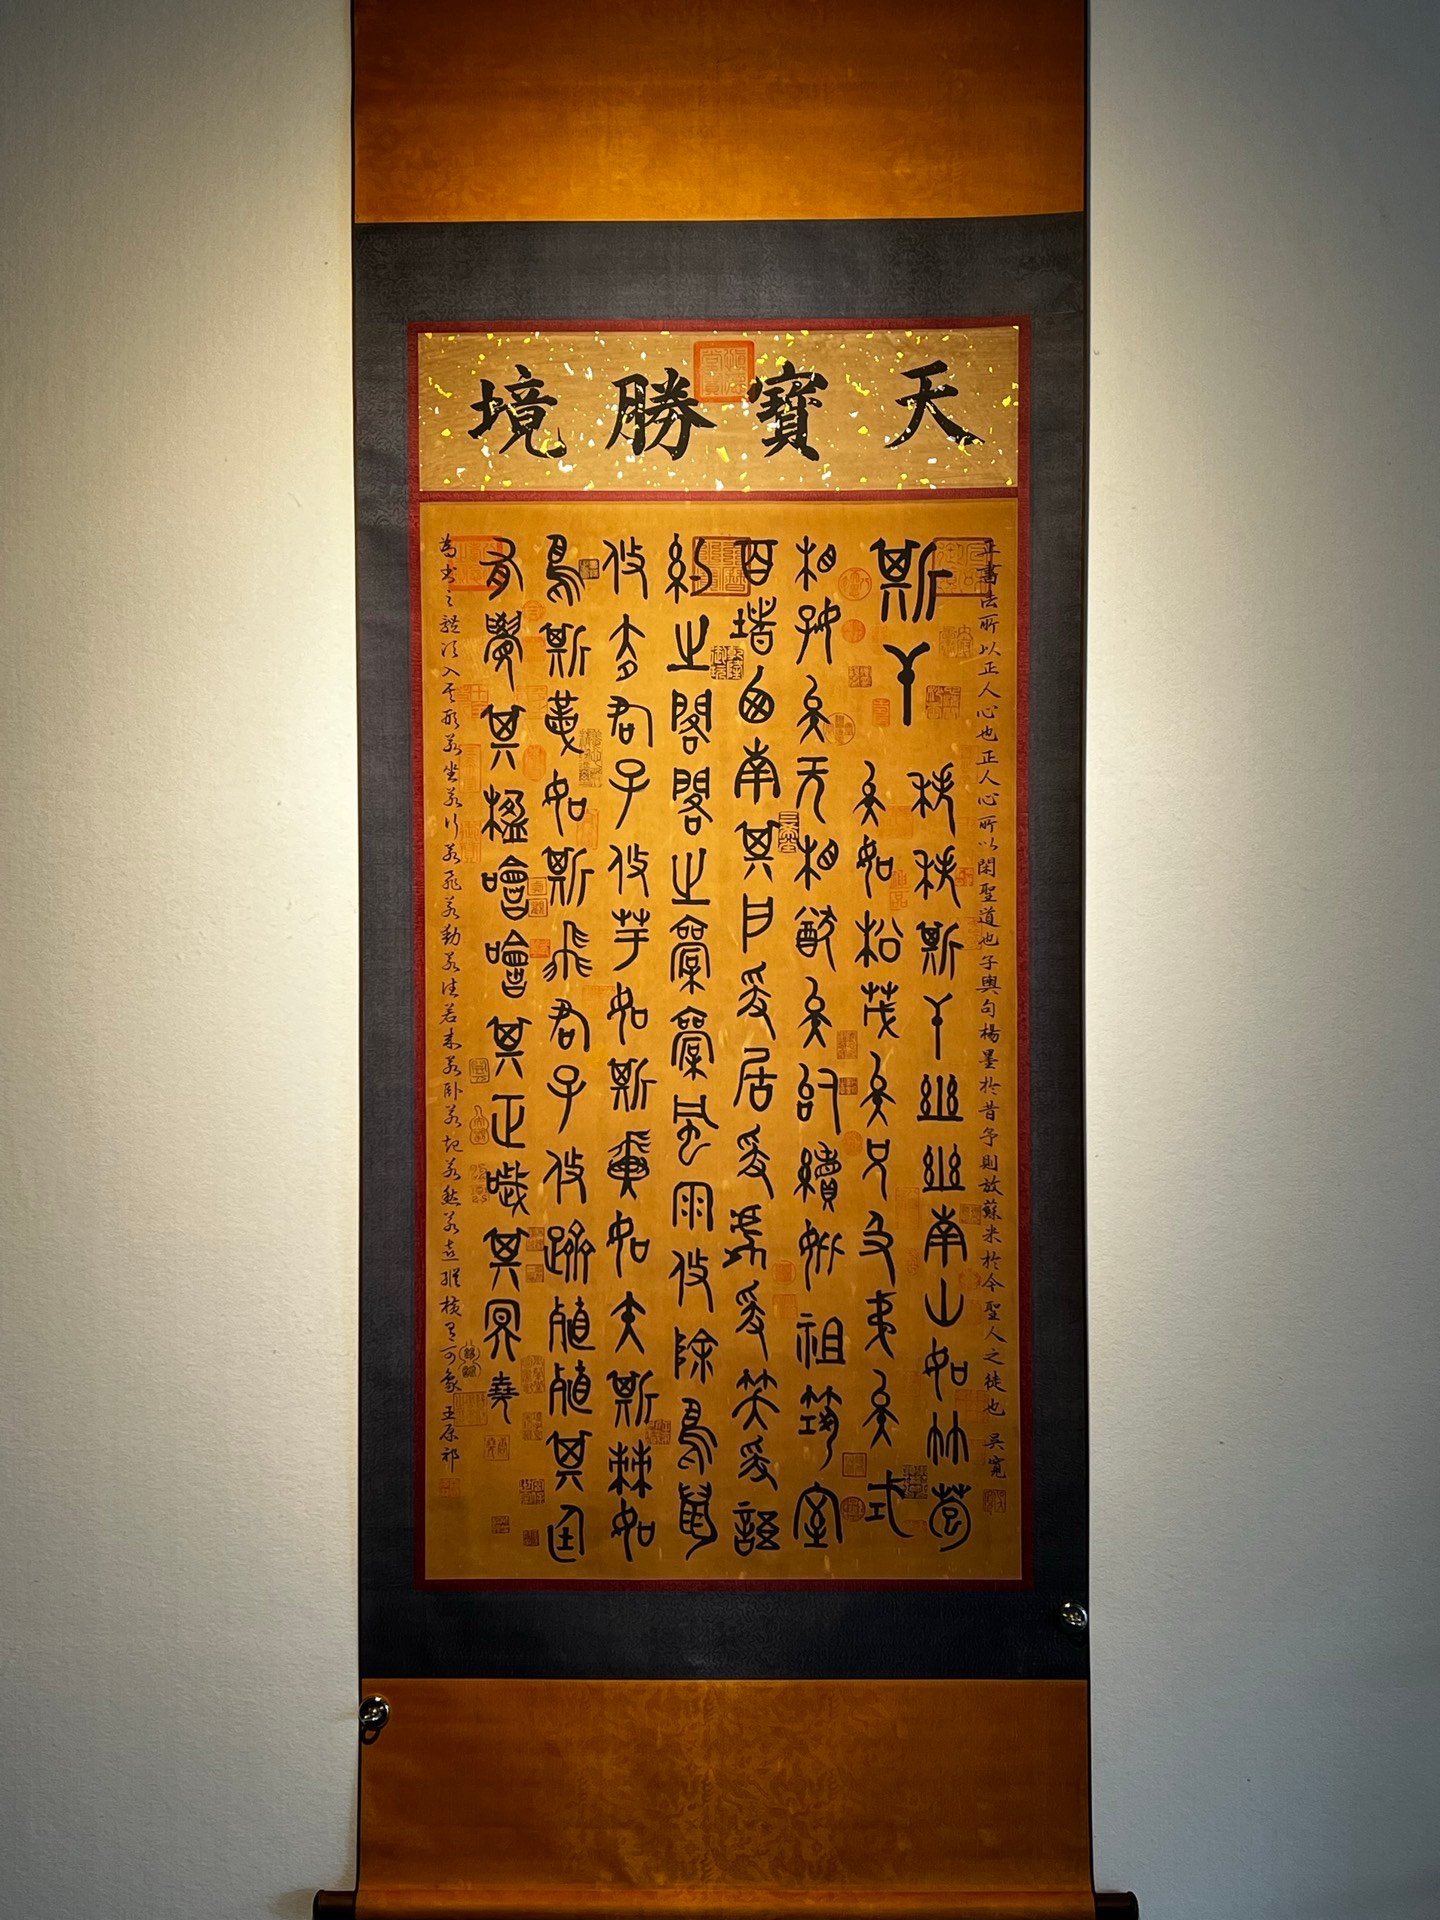 天寶勝境
正書法所以正人心也正人心所以閑聖道也子輿句楊墨於昔予則放蘇米於今聖人之徒也 吳寬
斯干
秩秩斯干幽幽南山如竹苞
矣如松茂矣兄及弟矣式
相好矣无相猶矣似續妣祖築室
百堵西南其戶爰居爰處爰笑爰語
約之閣閣之橐橐風雨攸除鳥鼠
攸去君子攸芋如斯翼如矢斯棘如
鳥斯革如斯飛君子攸躋殖殖其庭
有覺其楹噲噲其正噦其冥
為書之體須入其形若坐若行若飛若動若往若來若臥若起若愁若喜縱橫有可象 王原祁